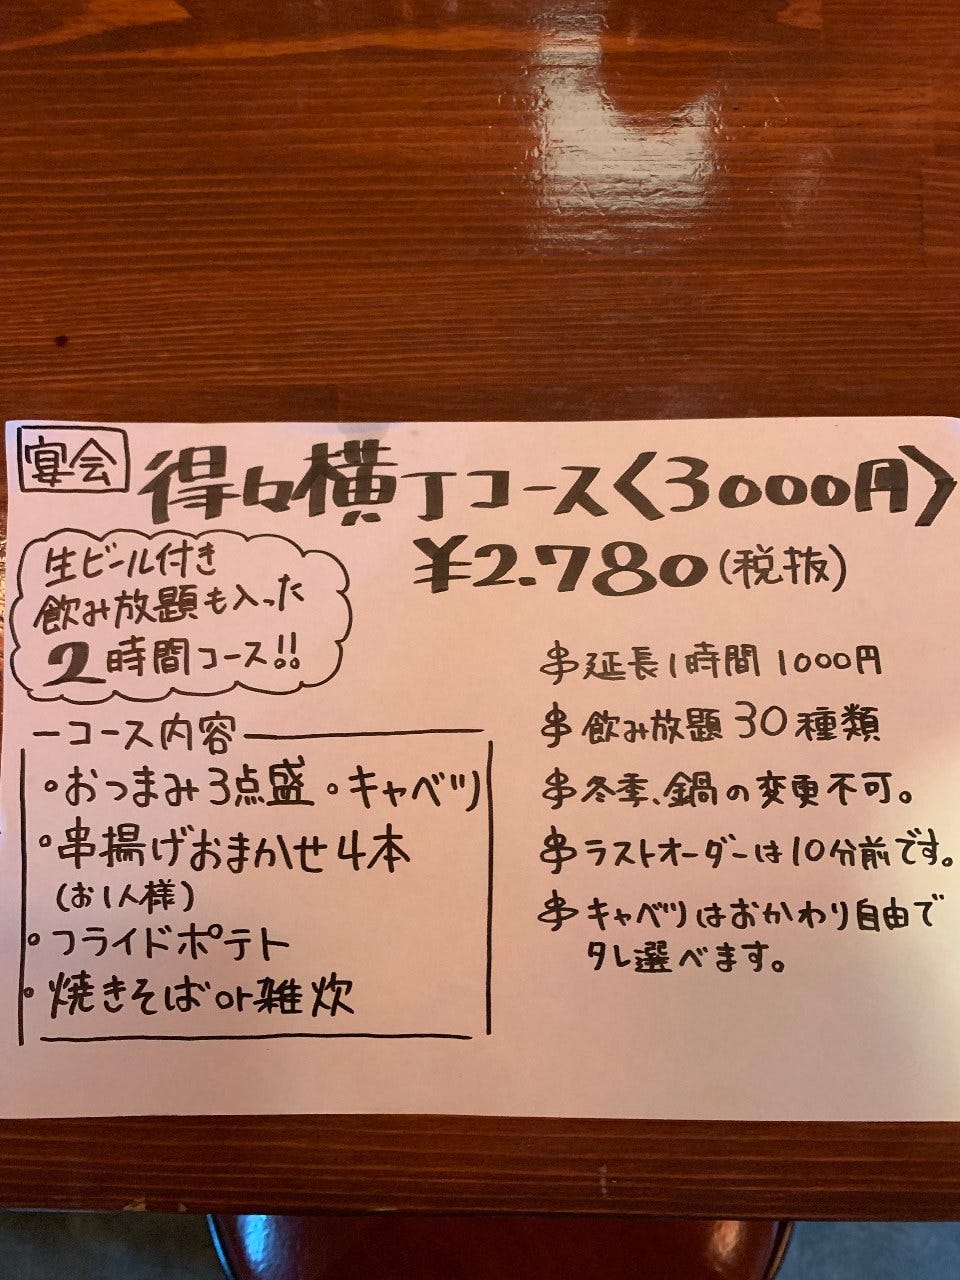 宴会
得々横丁コース〈3000円〉
¥2.780(税抜)
生ビール付き
飲み放題も入った
2時間コース!!
コース内容
・おつまみ3点盛 ・キャベツ
・串揚げおまかせ4本
(お1人様)
・フライドポテト
・焼きそばor雑炊
串延長1時間 1000円
串飲み放題30種類
串冬季、鍋の変更不可。
串ラストオーダーは10分前です。
串キャベツはおかわり自由で
タレ選べます。